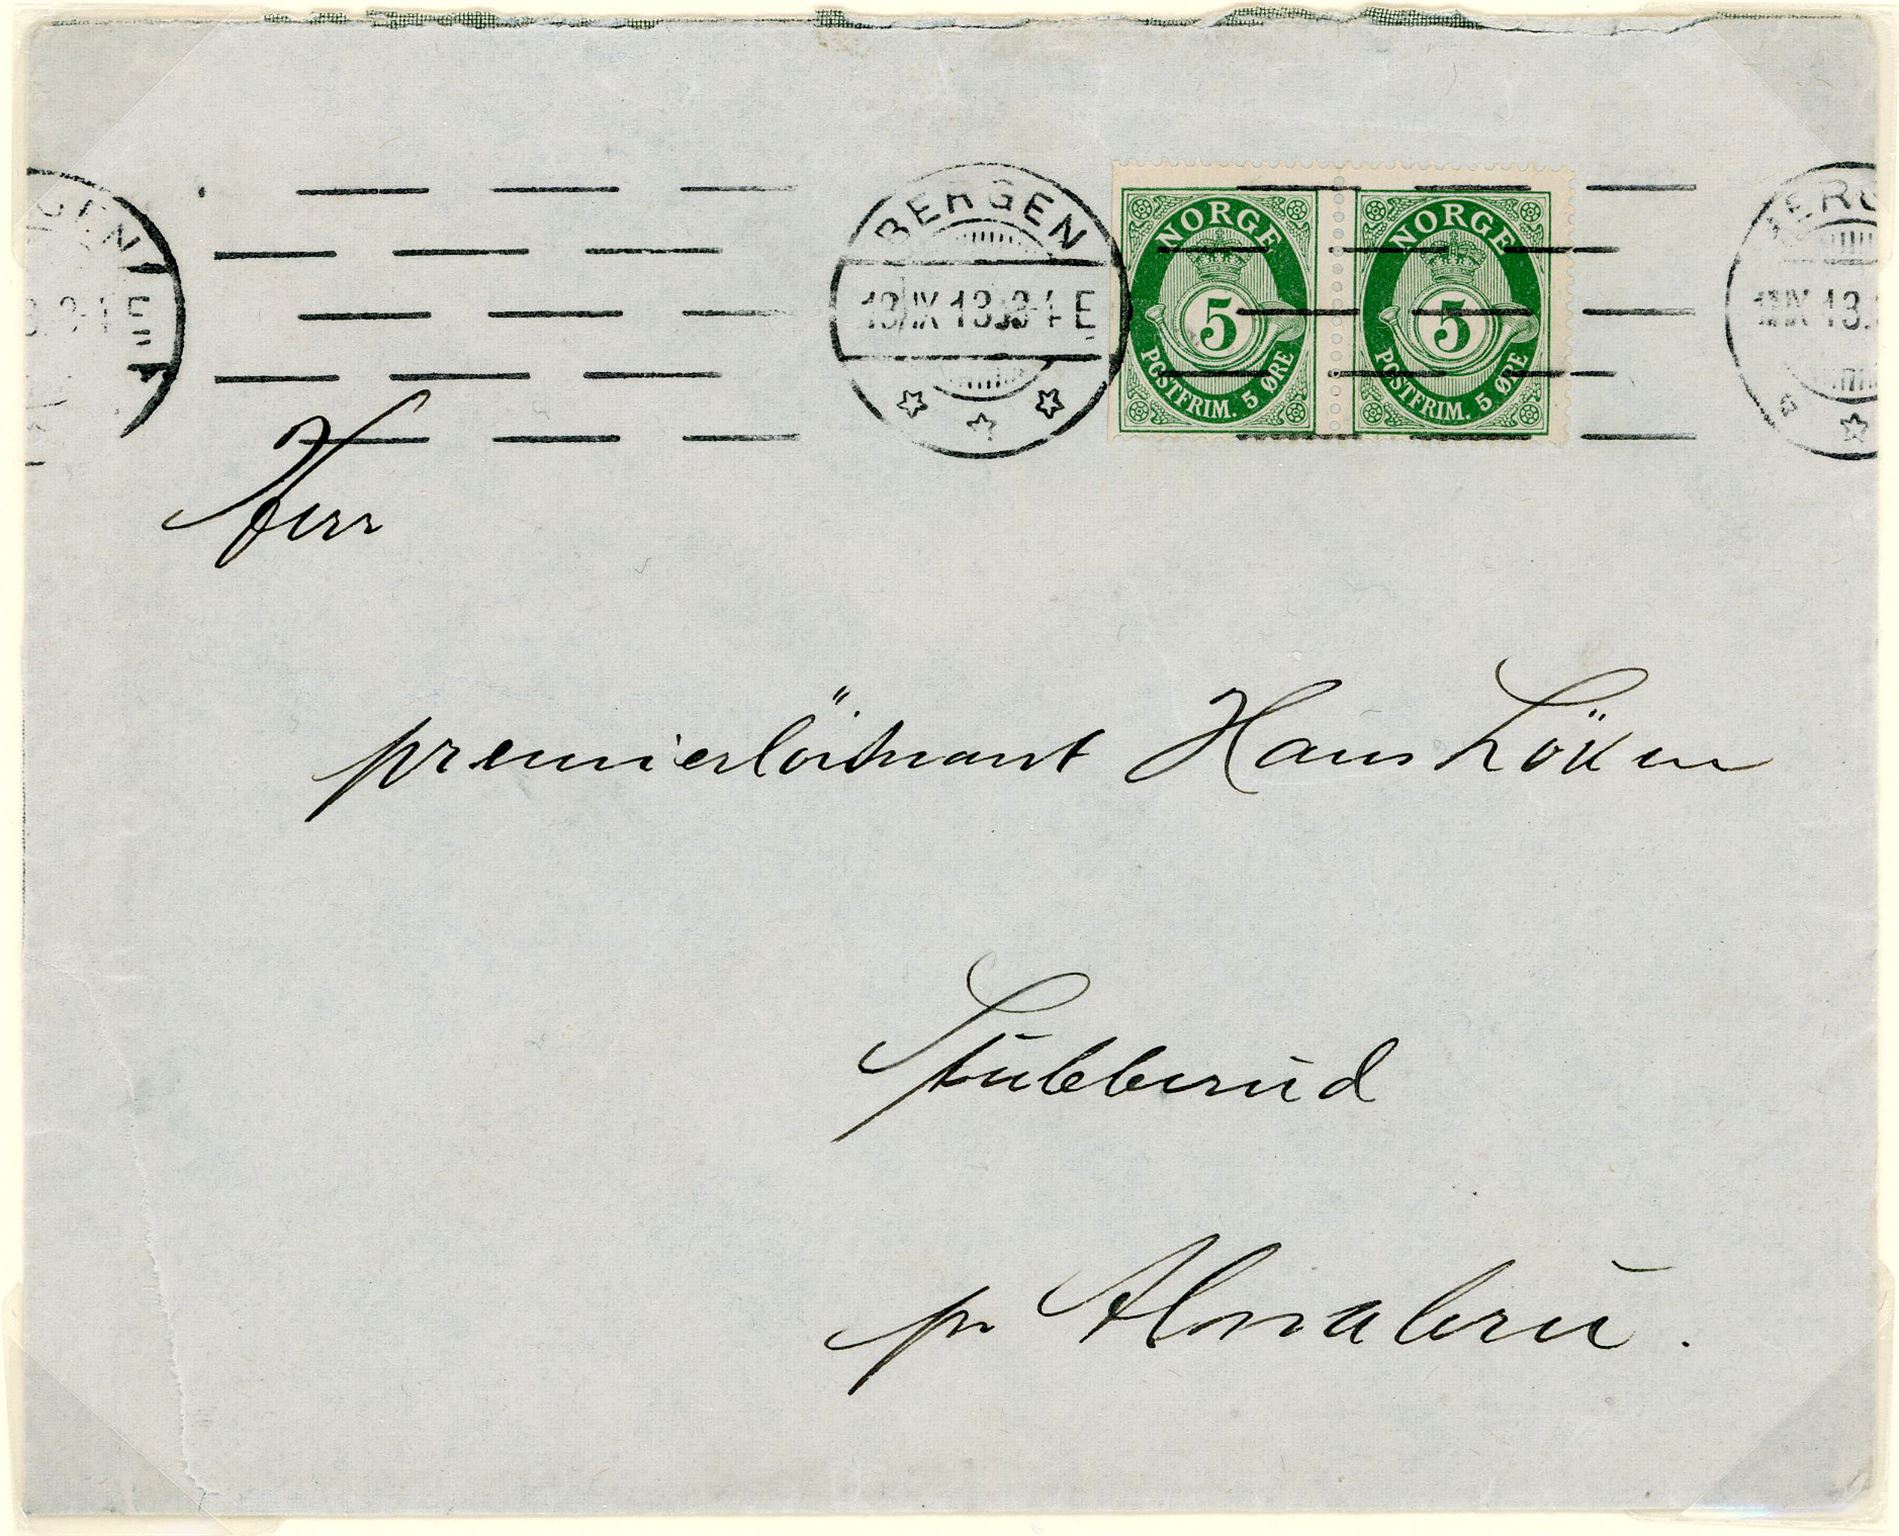 BERGEN
13.IX.13.3-4 E
NORGE
5
POSTFRIM. 5 ØRE
NORGE
5
POSTFRIM. 5 ØRE
Herr
premierlöitnant Hans Löken
Stubberud
pr Alnabru.